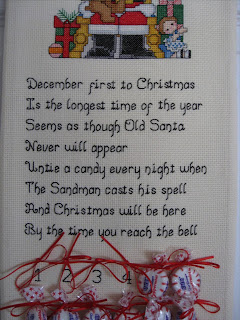 December first to Christmas
Is the longest time of the year
Seems as though Old Santa
Never will appear
Untie a candy every night when
The Sandman casts his spell
And Christmas will be here
By the time you reach the bell
1 2 3 4